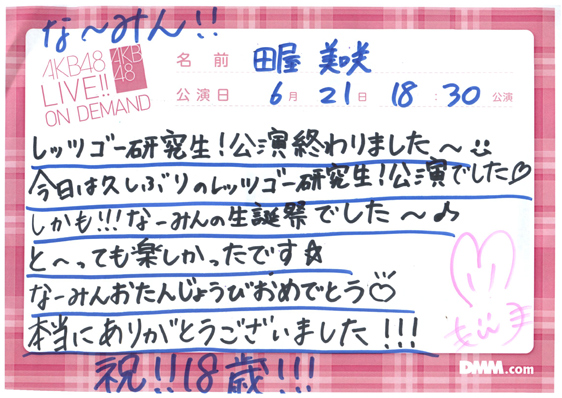 な～みん!!
AKB48
LIVE!!
ON DEMAND
AKB
48
名前 田屋 美咲
公演日 6月21日 18:30公演
レッツゴー研究生!公演終わりました～
今日は久しぶりのレッツゴー研究生!公演でした♡
しかも!!!なーみんの生誕祭でした～♪
と～っても楽しかったです☆
なーみんおたんじょうびおめでとう♡
本当にありがとうございました!!!
祝!!18歳!!!
DMM.com